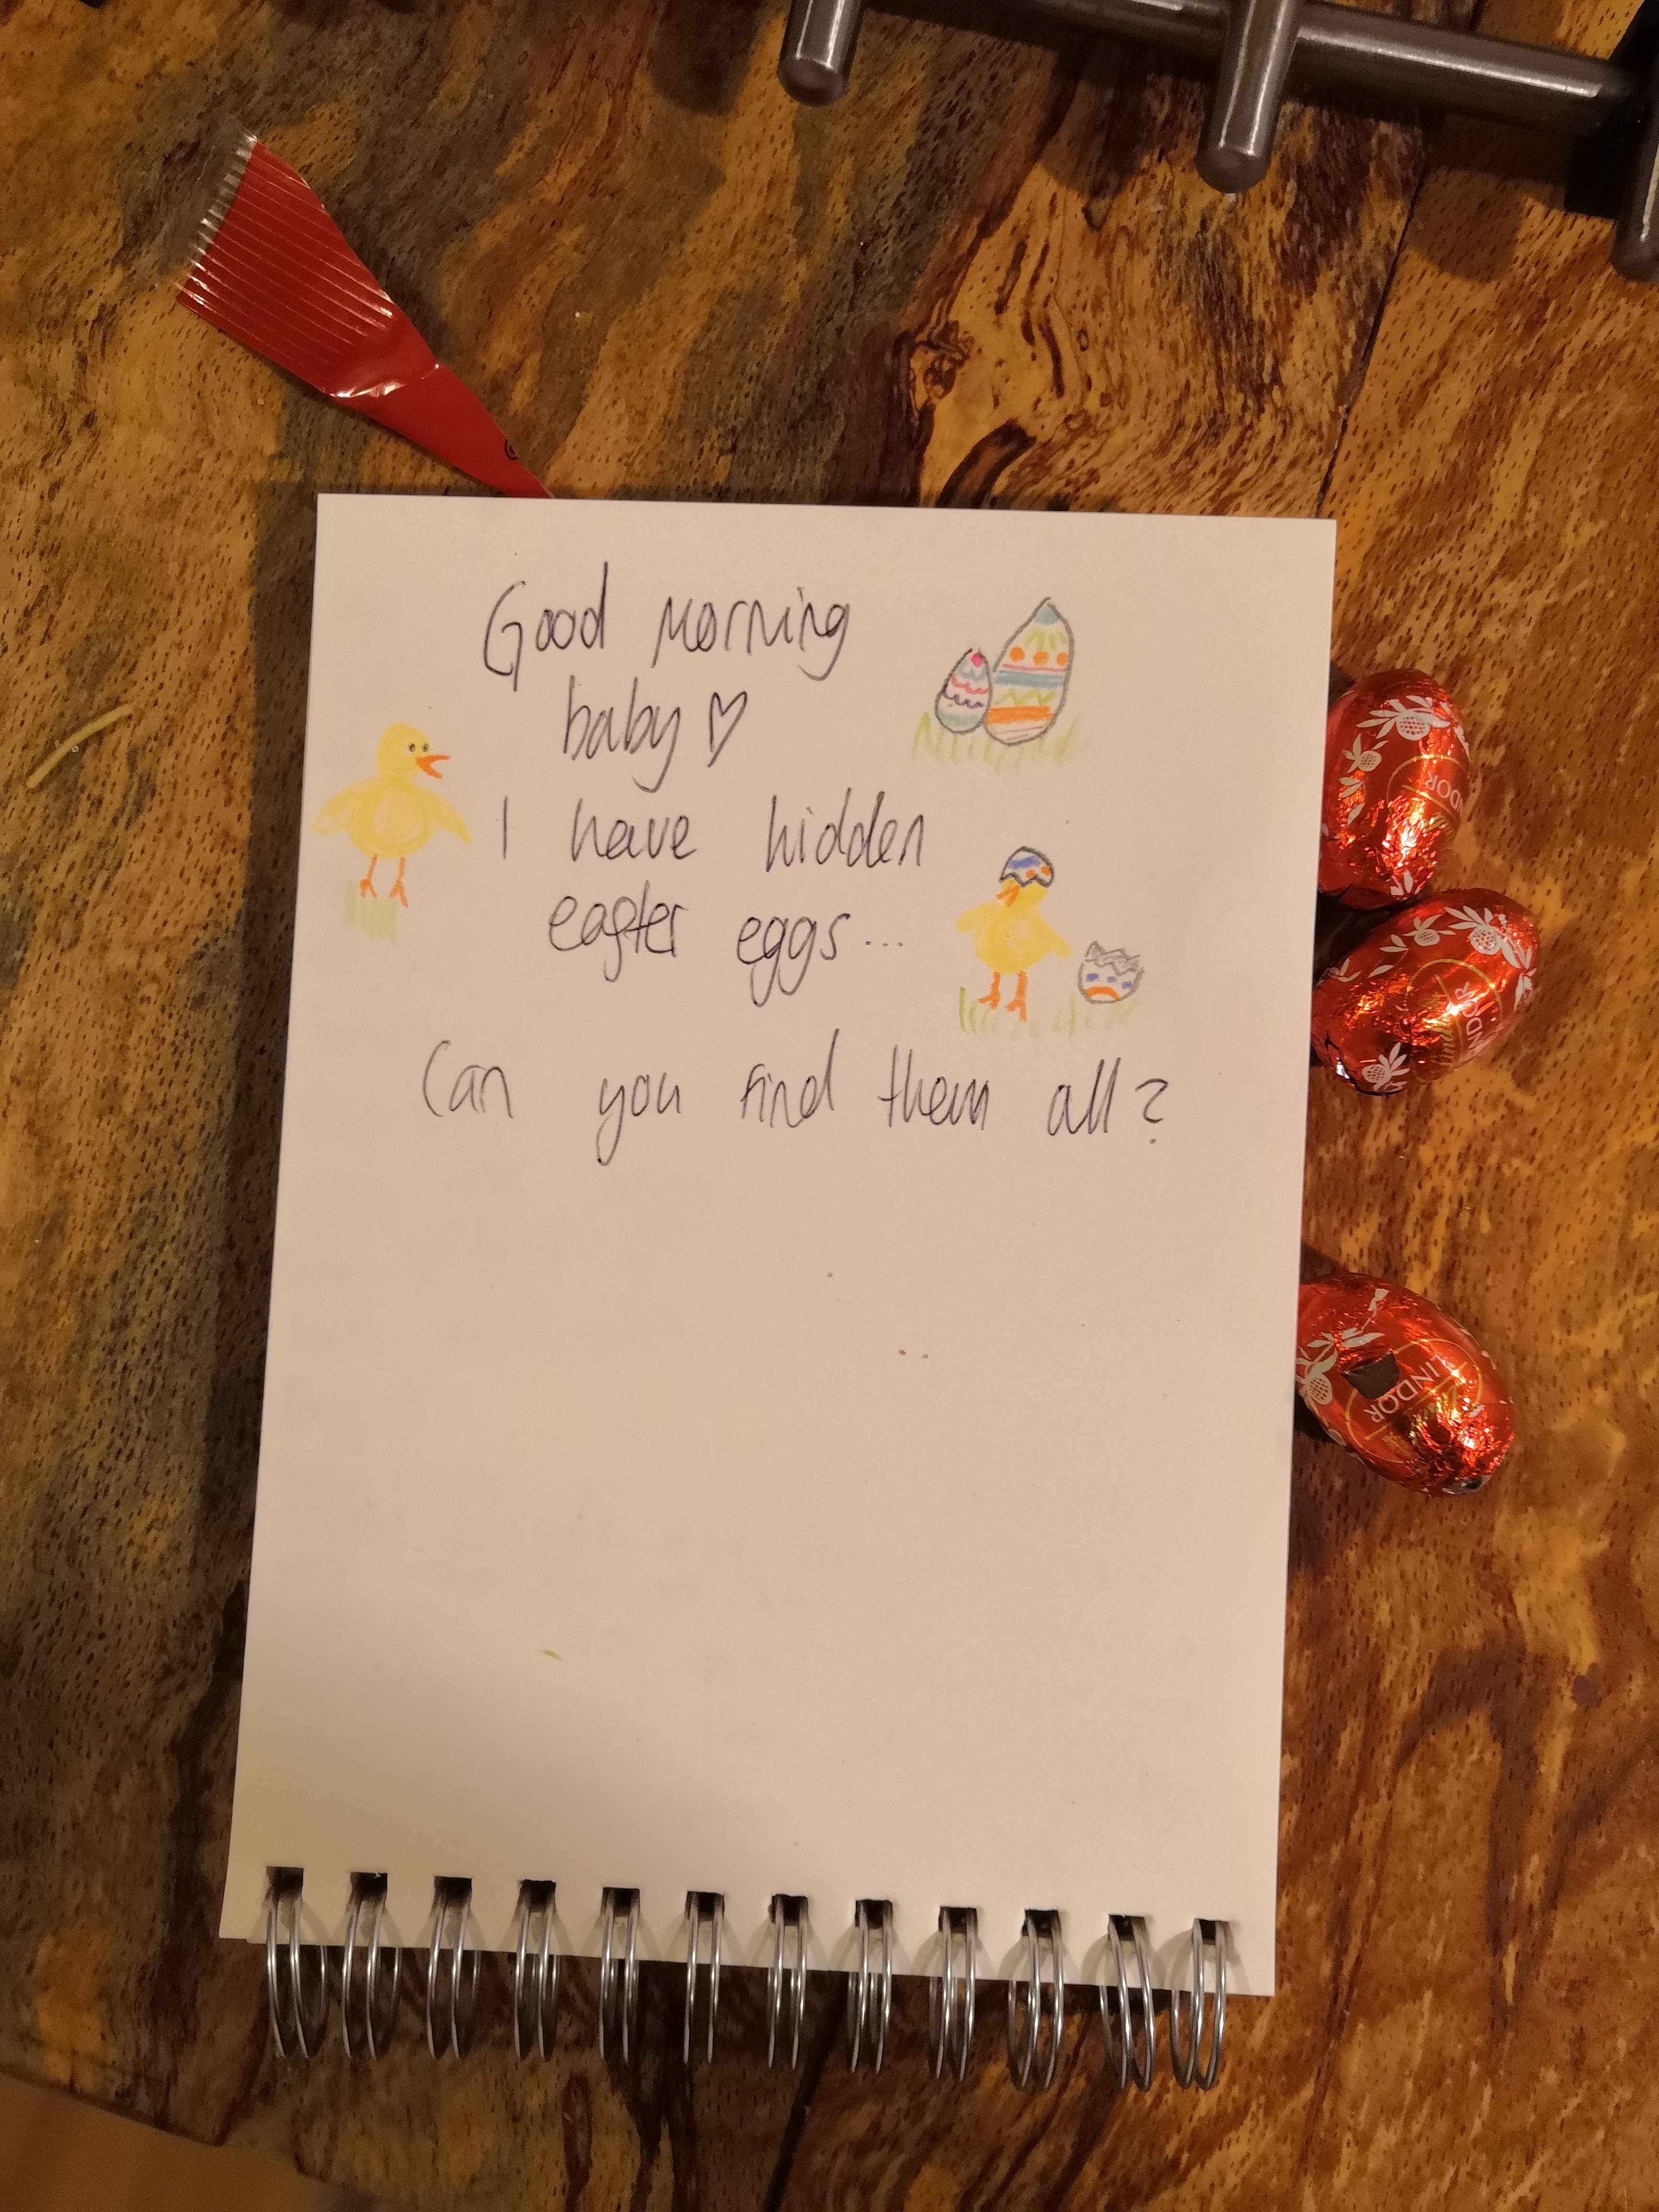 Good morning
baby ♡
I have hidden
easter eggs...
Can you find them all?
LINDOR
LINDOR
LINDOR